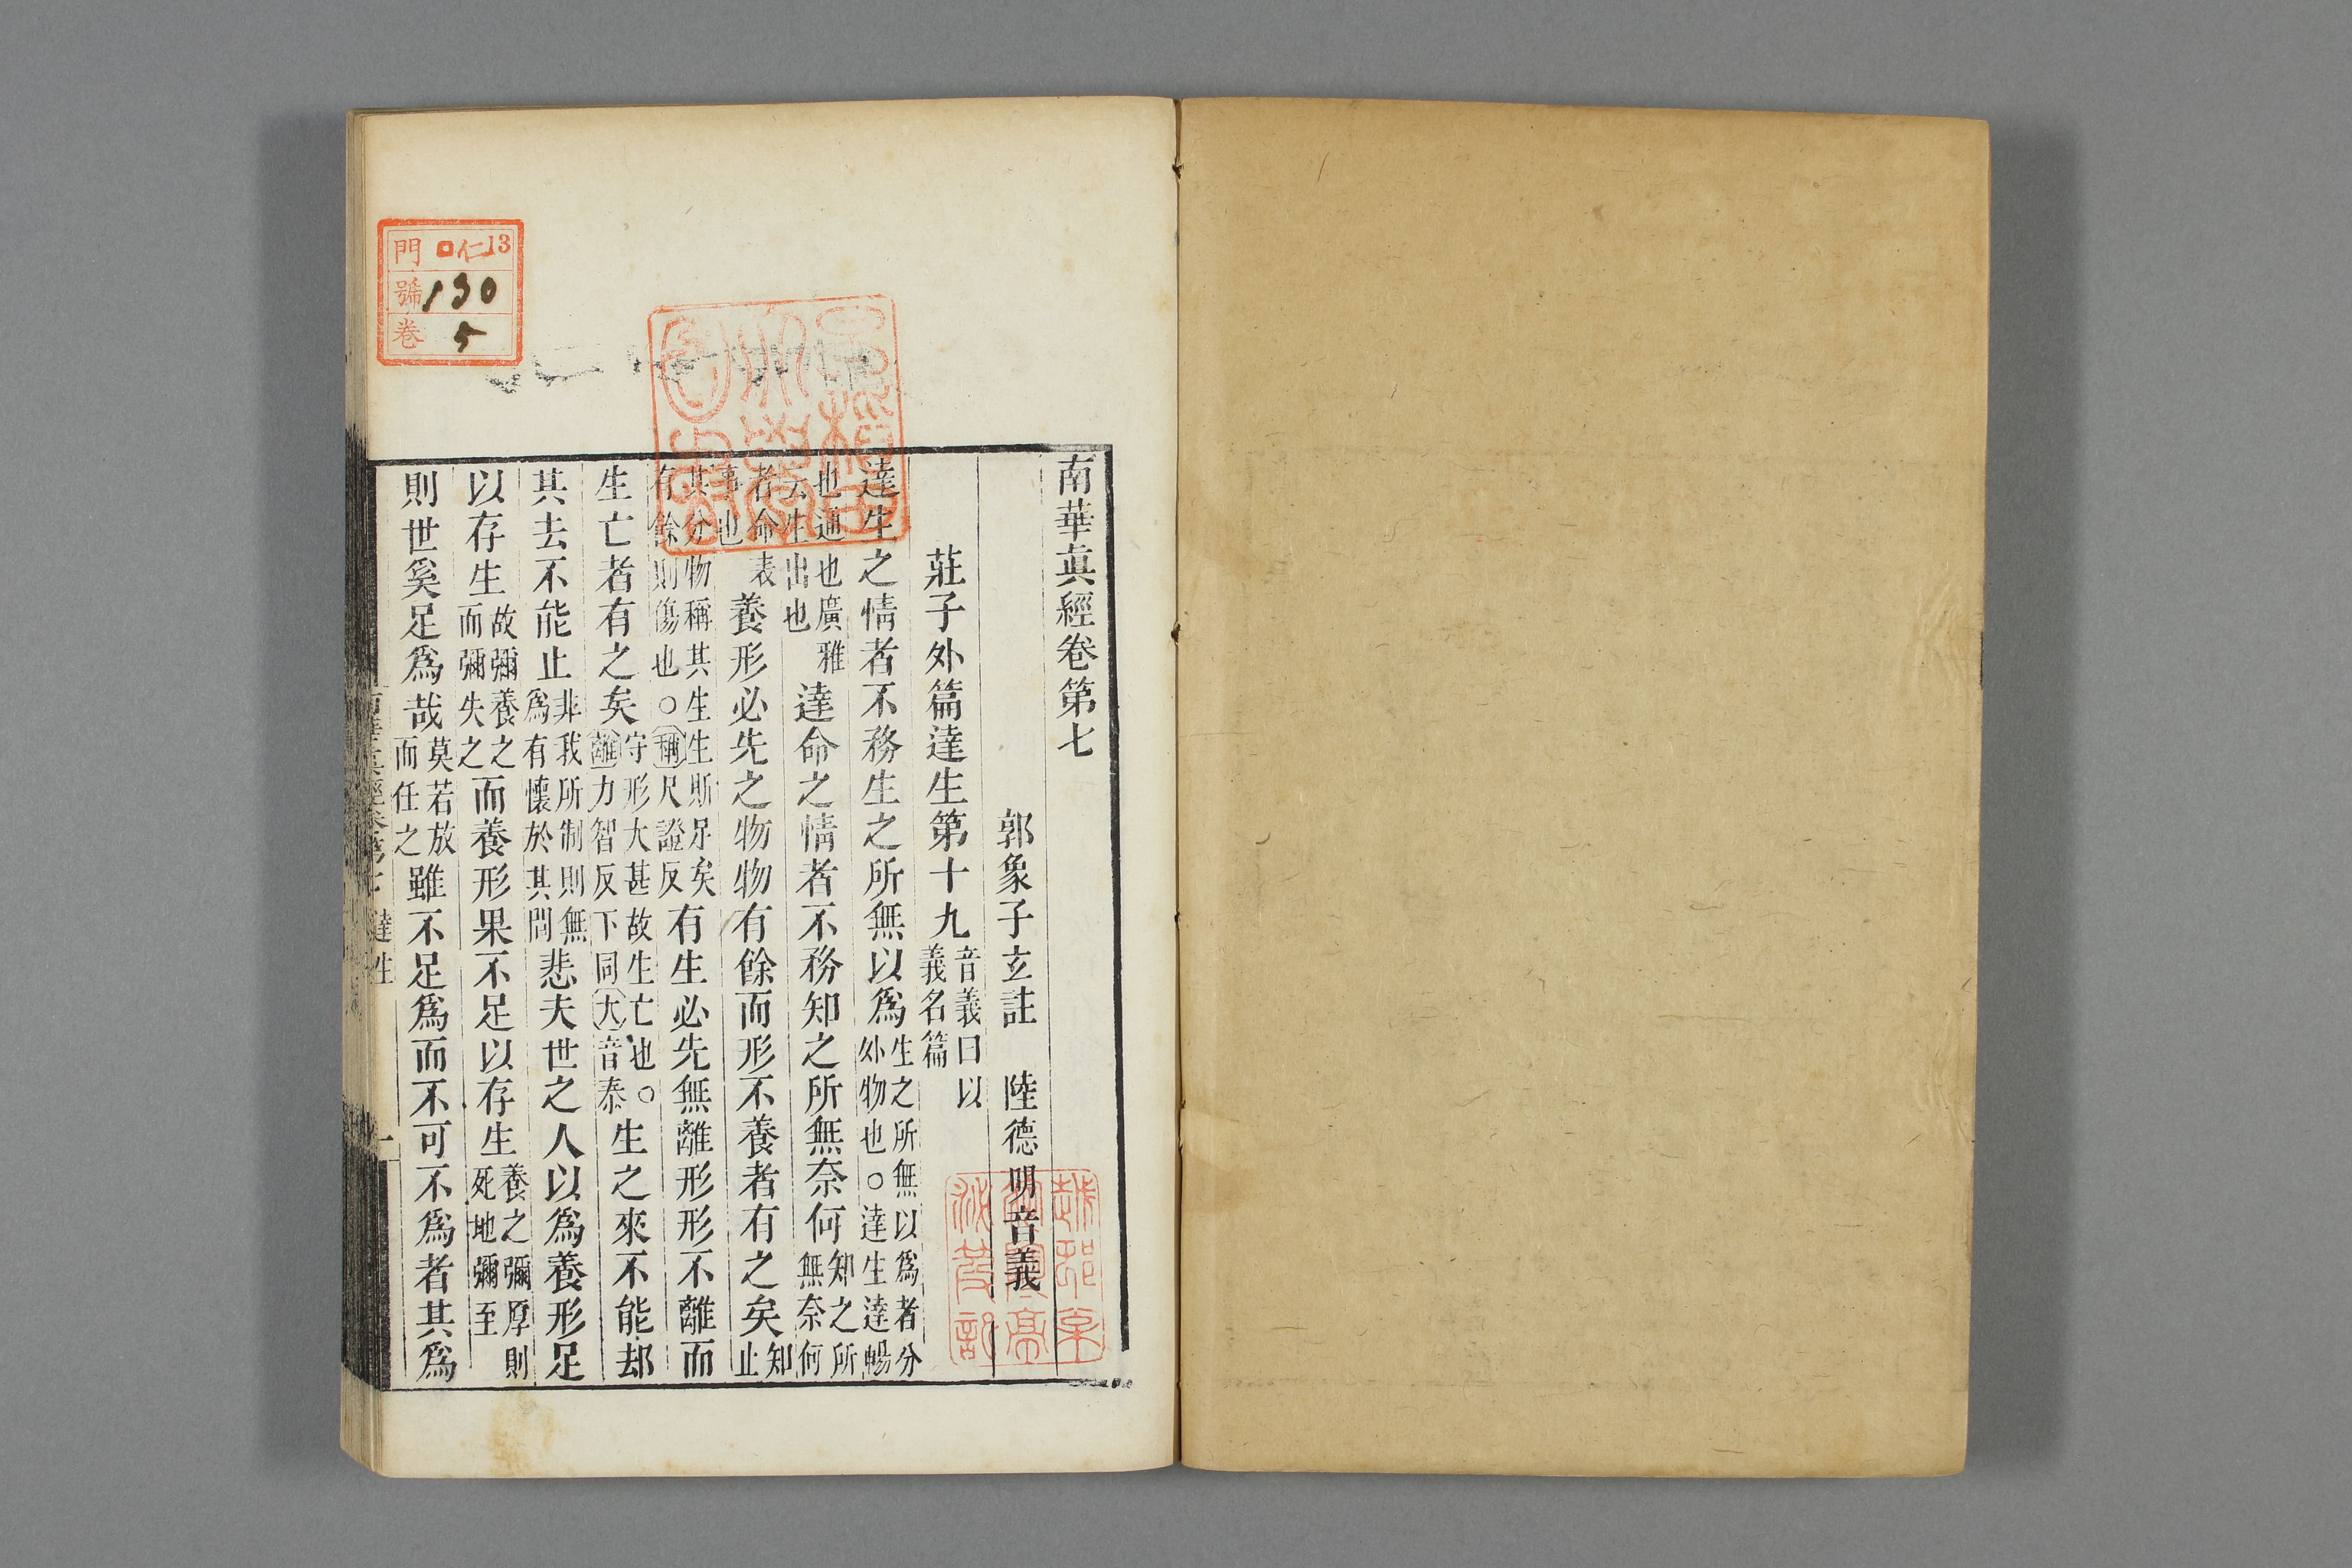 南華眞經卷第七
郭象子玄註　陸德明音義
莊子外篇達生第十九音義曰以義名篇
達生之情者不務生之所無以爲生之所無以爲者分外物也○達生達暢
也通也廣雅云生出也達命之情者不務知之所無奈何知之所無奈何
者命表事也養形必先之物物有餘而形不養者有之矣知止
其分物稱其生生斯足矣有餘則傷也○稱尺證反有生必先無離形形不離而
生亡者有之矣守形大甚故生亡也○離力智反下同大音泰生之來不能却
其去不能止非我所制則無爲有懷於其間悲夫世之人以爲養形足
以存生故彌養之而彌失之而養形果不足以存生養之彌厚則死地彌至
則世奚足爲哉莫若放而任之雖不足爲而不可不爲者其爲
南華眞經卷第七　達生　一
門 口仁13
號 130
卷 5